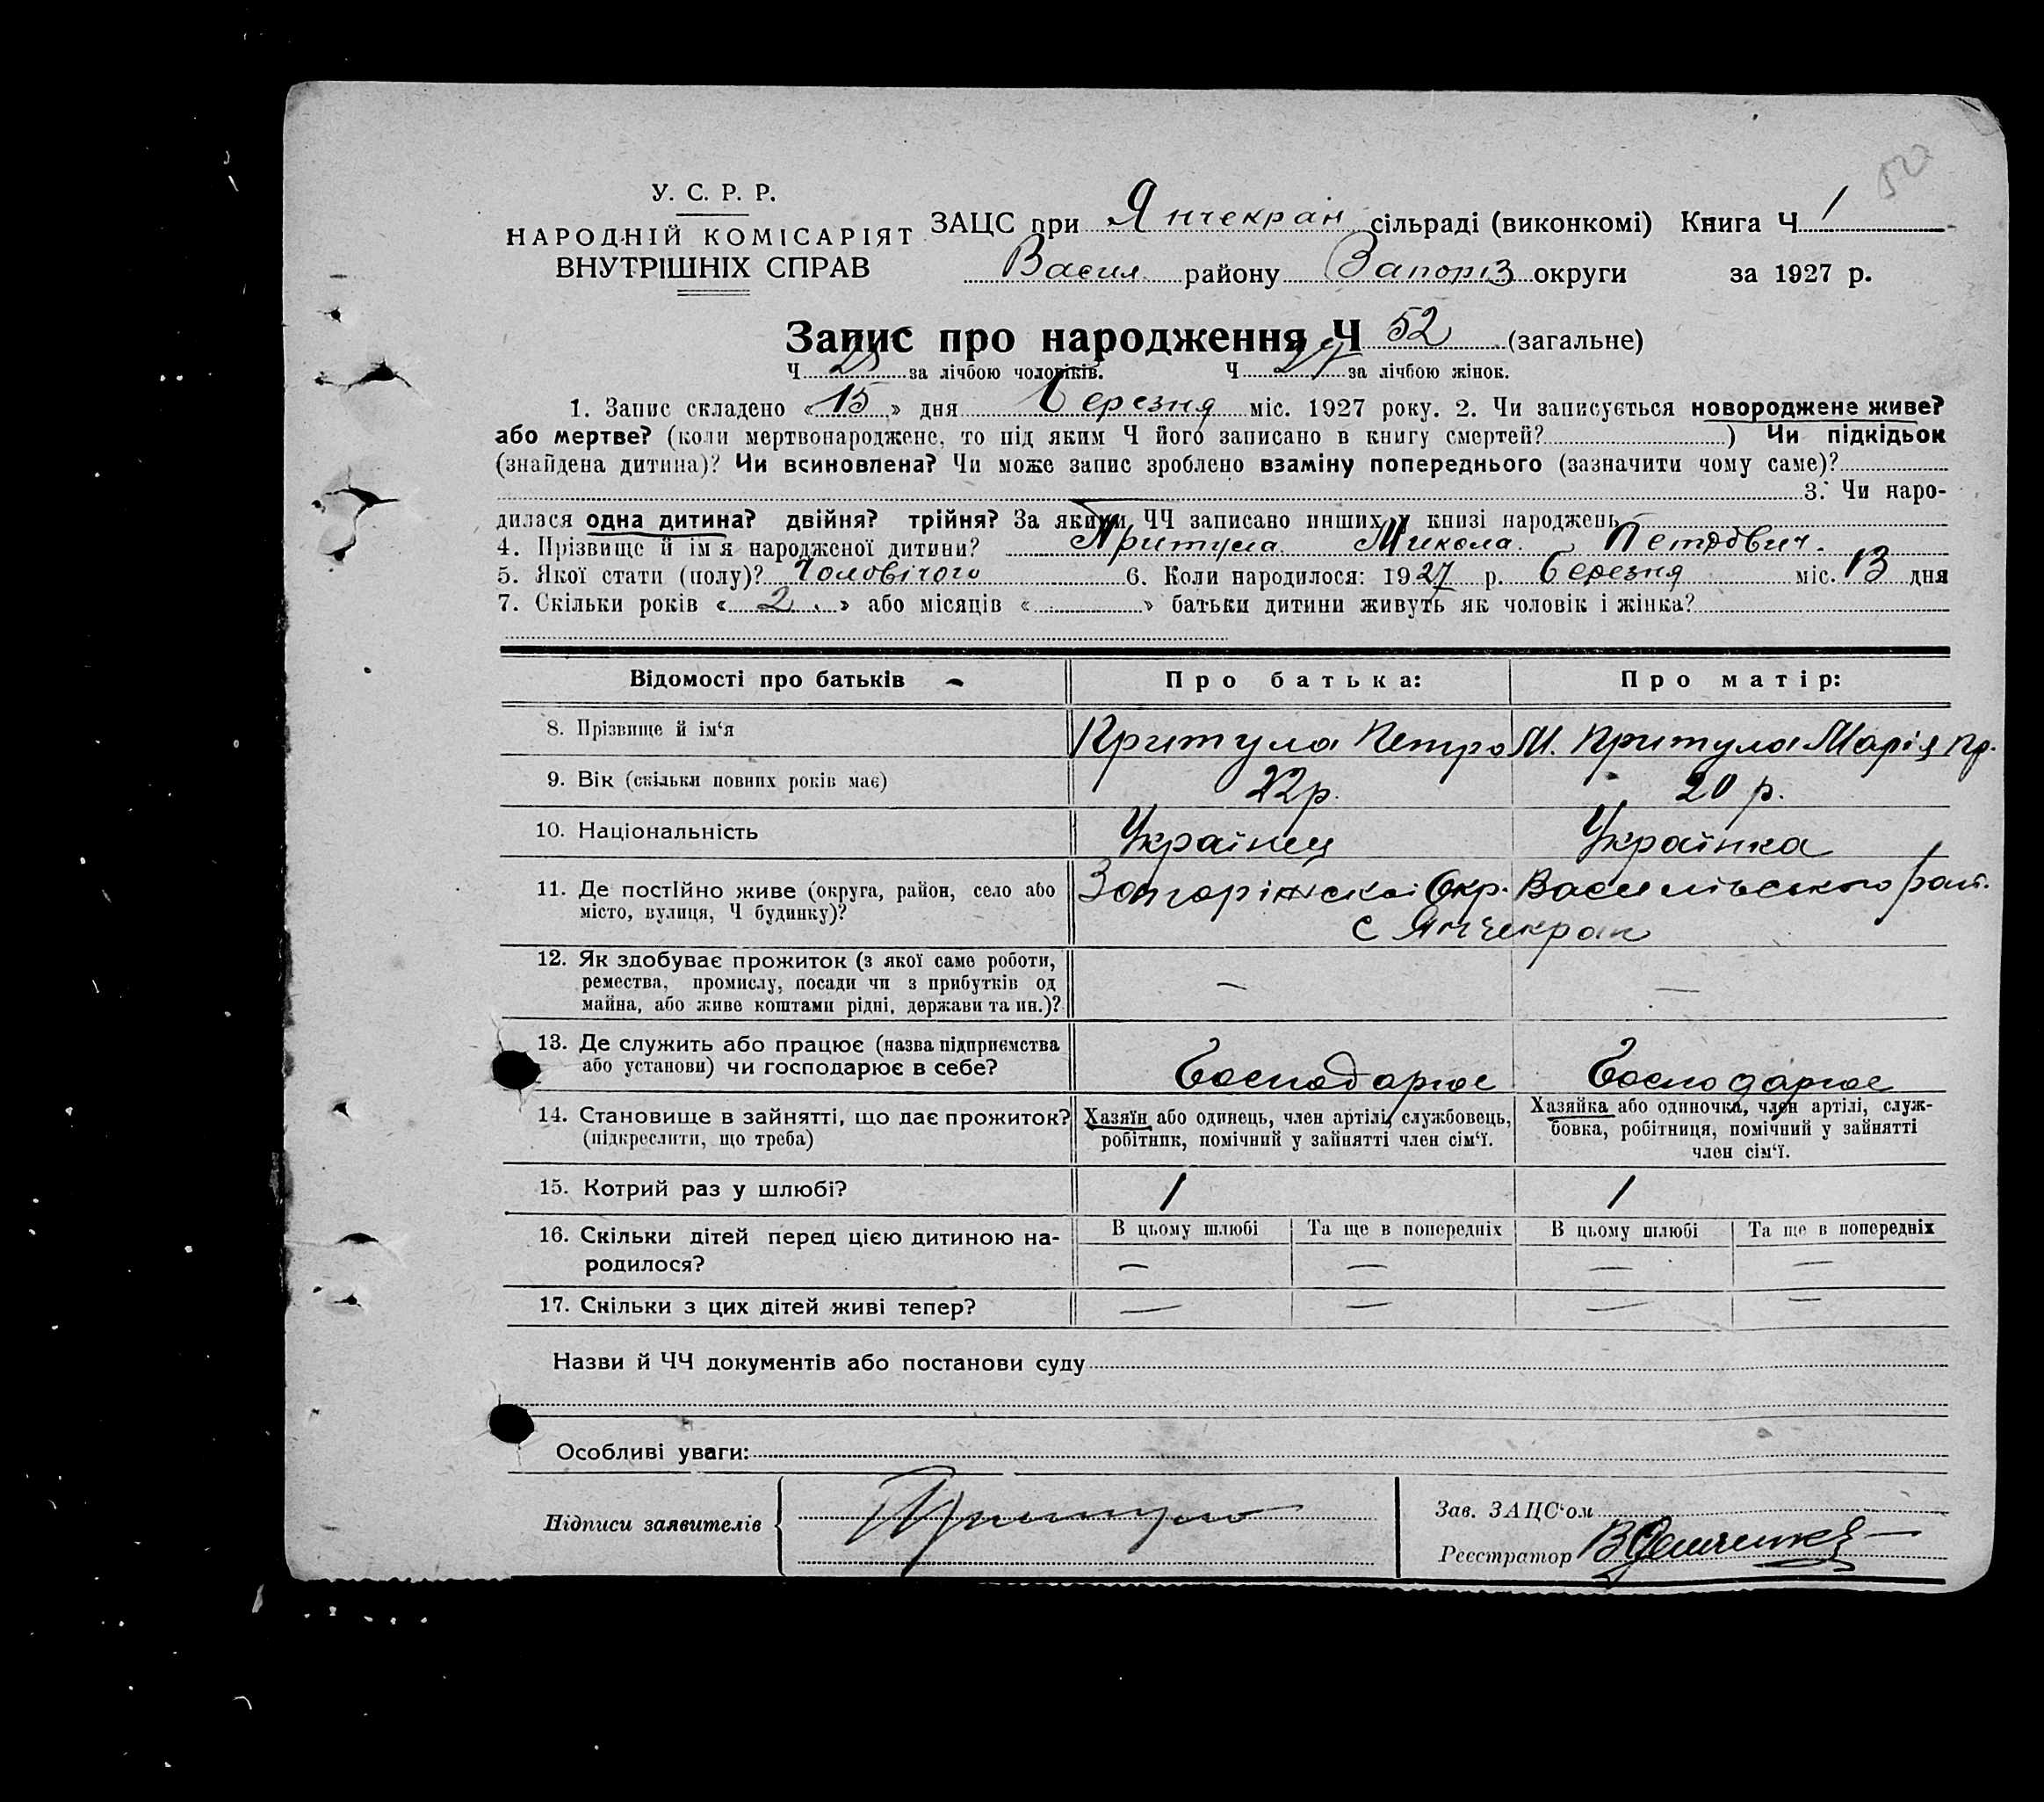 50
У. С. Р. Р.
НАРОДНІЙ КОМІСАРІЯТ
ВНУТРІШНІХ СПРАВ
ЗАЦС при Янчекран сільраді (виконкомі) Книга Ч 1
Васил. району Запоріз округи за 1927 р.
Запис про народження Ч 52 (загальне)
Ч за лічбою чоловіків. Ч 27 за лічбою жінок.
1. Запис складено «15» дня Березня міс. 1927 року. 2. Чи записується новороджене живе?
або мертве? (коли мертвонароджене, то під яким Ч його записано в книгу смертей? ) Чи підкідьок
(знайдена дитина)? Чи всиновлена? Чи може запис зроблено взаміну попереднього (зазначити чому саме)?
3. Чи наро-
дилася одна дитина? двійня? трійня? За якими ЧЧ записано инших у книзі народжень
4. Прізвище й ім'я народженої дитини? Притула Микола Петрович.
5. Якої стати (полу)? Чоловічого 6. Коли народилося: 1927 р. Березня міс. 13 дня
7. Скільки років «2.» або місяців « » батьки дитини живуть як чоловік і жінка?
Відомості про батьків Про батька: Про матір:
8. Прізвище й ім'я Притула Петро М. Притула Марія Пр.
9. Вік (скільки повних років має) 22р. 20 р.
10. Національність Українец Українка
11. Де постійно живе (округа, район, село або Запоріжскоі Окр. Васильівського рай.
місто, вулиця, Ч будинку)? с Янчекран
12. Як здобуває прожиток (з якої саме роботи, — —
ремества, промислу, посади чи з прибутків од
майна, або живе коштами рідні, держави та ин.)?
13. Де служить або працює (назва підприємства Господарює Господарює
або установи) чи господарює в себе?
14. Становище в зайнятті, що дає прожиток? Хазяїн або одинець, член артілі, службовець, Хазяйка або одиночка, член артілі, служ-
(підкреслити, що треба) робітник, помічний у зайнятті член сім'ї. бовка, робітниця, помічний у зайнятті
член сім'ї.
15. Котрий раз у шлюбі? 1 1
16. Скільки дітей перед цією дитиною на- В цьому шлюбі Та ще в попередніх В цьому шлюбі Та ще в попередніх
родилося? — — — —
17. Скільки з цих дітей живі тепер? — — — —
Назви й ЧЧ документів або постанови суду
Особливі уваги:
Підписи заявителів Притула
Зав. ЗАЦС'ом
Реєстратор